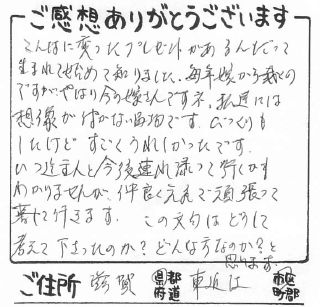 ご感想ありがとうございます
こんなに変ったプレゼントがあるんだって
生まれて始めて知りました。毎年嫁から戴くの
ですがやはり今の嫁さんですネ、私達には
想像が付かない品物です。びっくりも
したけど すごくうれしかったです。
いつ迄主人と今後連れ添って行くかも
わかりませんが、仲良く元気で頑張って
暮して行きます。 この文句はどうして
考えて下さったのか？どんな方なのか？と
思います。
ご住所 滋賀 都道府県 東近江 市区町郡